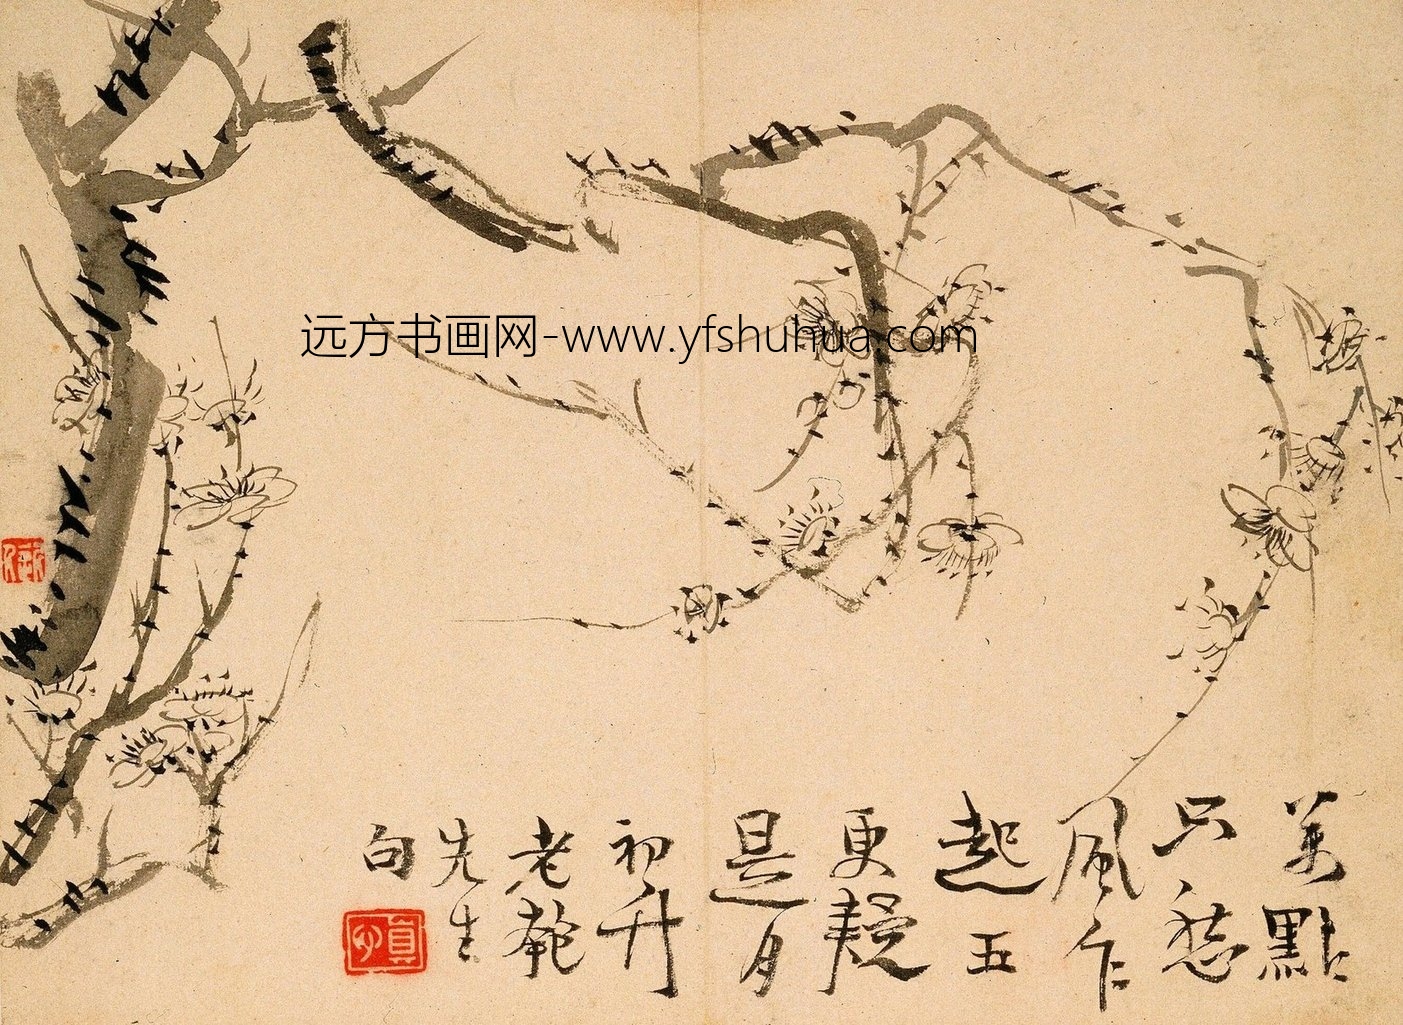 远方书画网-www.yfshuhua.com
萬點
只愁
風乍
起五
更疑
是月
初升
老
先生
句